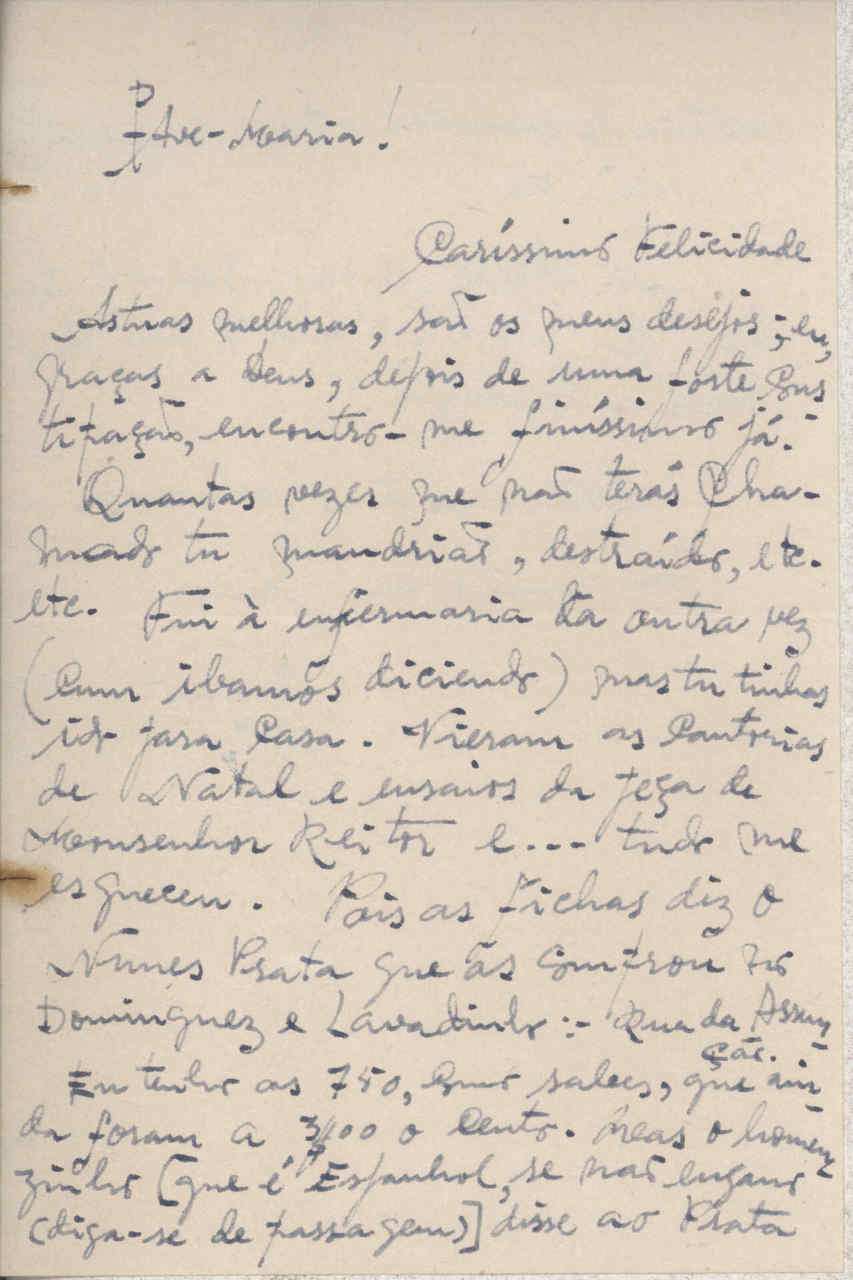 Ave-Maria!
Caríssimo Felicidade
As tuas melhoras, são os meus desejos; eu,
graças a Deus, depois de uma forte cons
tipação, encontro-me finíssimo já.
Quantas vezes me não terás cha-
mado tu mandrião, destraído, etc.
etc. Fui à enfermaria da outra vez
(cum íbamos diciendo) mas tu tinhas
ido para casa. Vieram as cantorias
de Natal e ensaios da peça de
Monsenhor Reitor e... tudo me
esqueceu. Pois as fichas diz o
Nunes Prata que as comprou no
Dominguez e Lavadinho:- Rua da Assun
ção.
Eu tenho as 750, como sabes, que ain
da foram a 3$00 o cento. Mas o homen
zinho [que é Espanhol, se não engano
(diga-se de passagem)] disse ao Prata